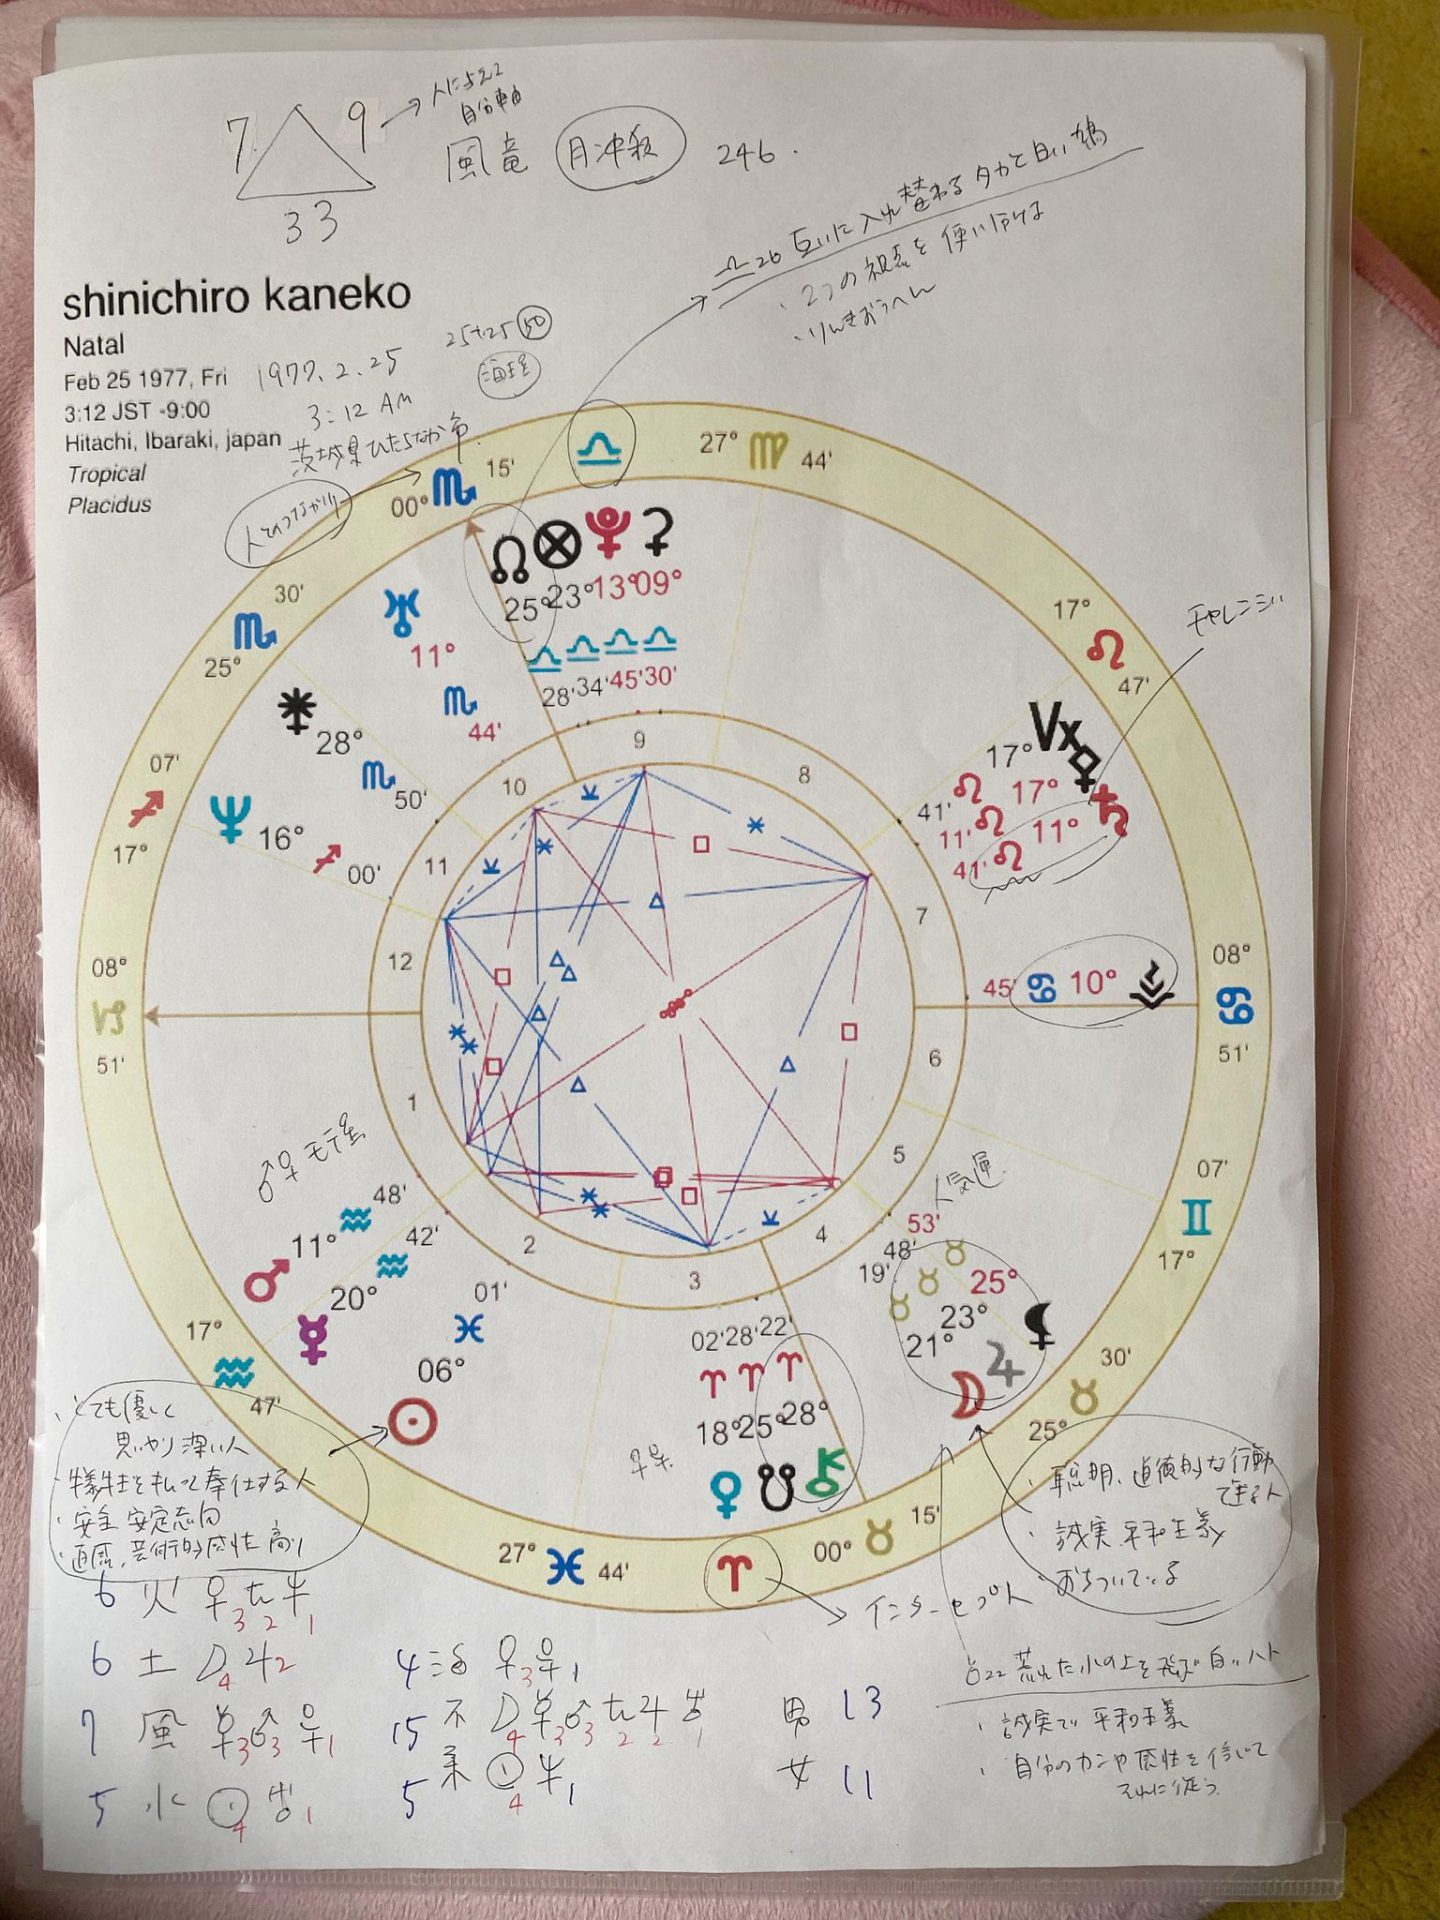 7 9 → 人に与える
自分軸
33
風竜 月冲殺 246.
♎26 互いに入れ替わるタカと白い鳩
・2つの視点を使い分け
・りんきおうへん
shinichiro kaneko
Natal
Feb 25 1977, Fri
3:12 JST -9:00
Hitachi, Ibaraki, japan
Tropical
Placidus
1977.2.25
3:12 AM
茨城県ひたちなか市
25+25 50
人とのつながり
00° ♏ 15'
♎
27° ♍ 44'
25° ♏ 30'
17° ♐ 07'
08° ♑ 51'
17° ♒ 47'
27° ♓ 44'
♈
00° ♉ 15'
25° ♉ 30'
17° ♊ 07'
08° ♋ 51'
17° ♌ 47'
☊ 25° ♎ 28'
⊗ 23° ♎ 34'
13° ♎ 45'
⚳ 09° ♎ 30'
♅ 11° ♏ 44'
⚵ 28° ♏ 50'
♆ 16° ♐ 00'
チャレンジ
Vx 17° ♌ 41'
⚴ 17° ♌ 11'
♄ 11° ♌ 41'
45' ♋ 10°
1
2
3
4
5
6
7
8
9
10
11
12
♂♀ モテ星
♂ 11° ♒ 48'
☿ 20° ♒ 42'
☉ 06° ♓ 01'
♀ 18° ♈ 02'
☋ 25° ♈ 28'
⚷ 28° ♈ 22'
人気運
☽ 21° ♉ 19'
♃ 23° ♉ 48'
⚸ 25° ♉ 53'
・とても優しく
思いやり深い人
・犠牲をもって奉仕する人
・安全 安定志向
・直感、芸術的感性高い
・聡明、道徳的な行動
できる人
・誠実 平和主義
・おちついている
インターセプト
6 火
6 土
7 風
5 水
4 活
15 不
5 柔
男 13
女 11
♉22 荒れた水の上を飛ぶ白いハト
・誠実で平和主義
・自分のカンや感性を信じて
それに従う